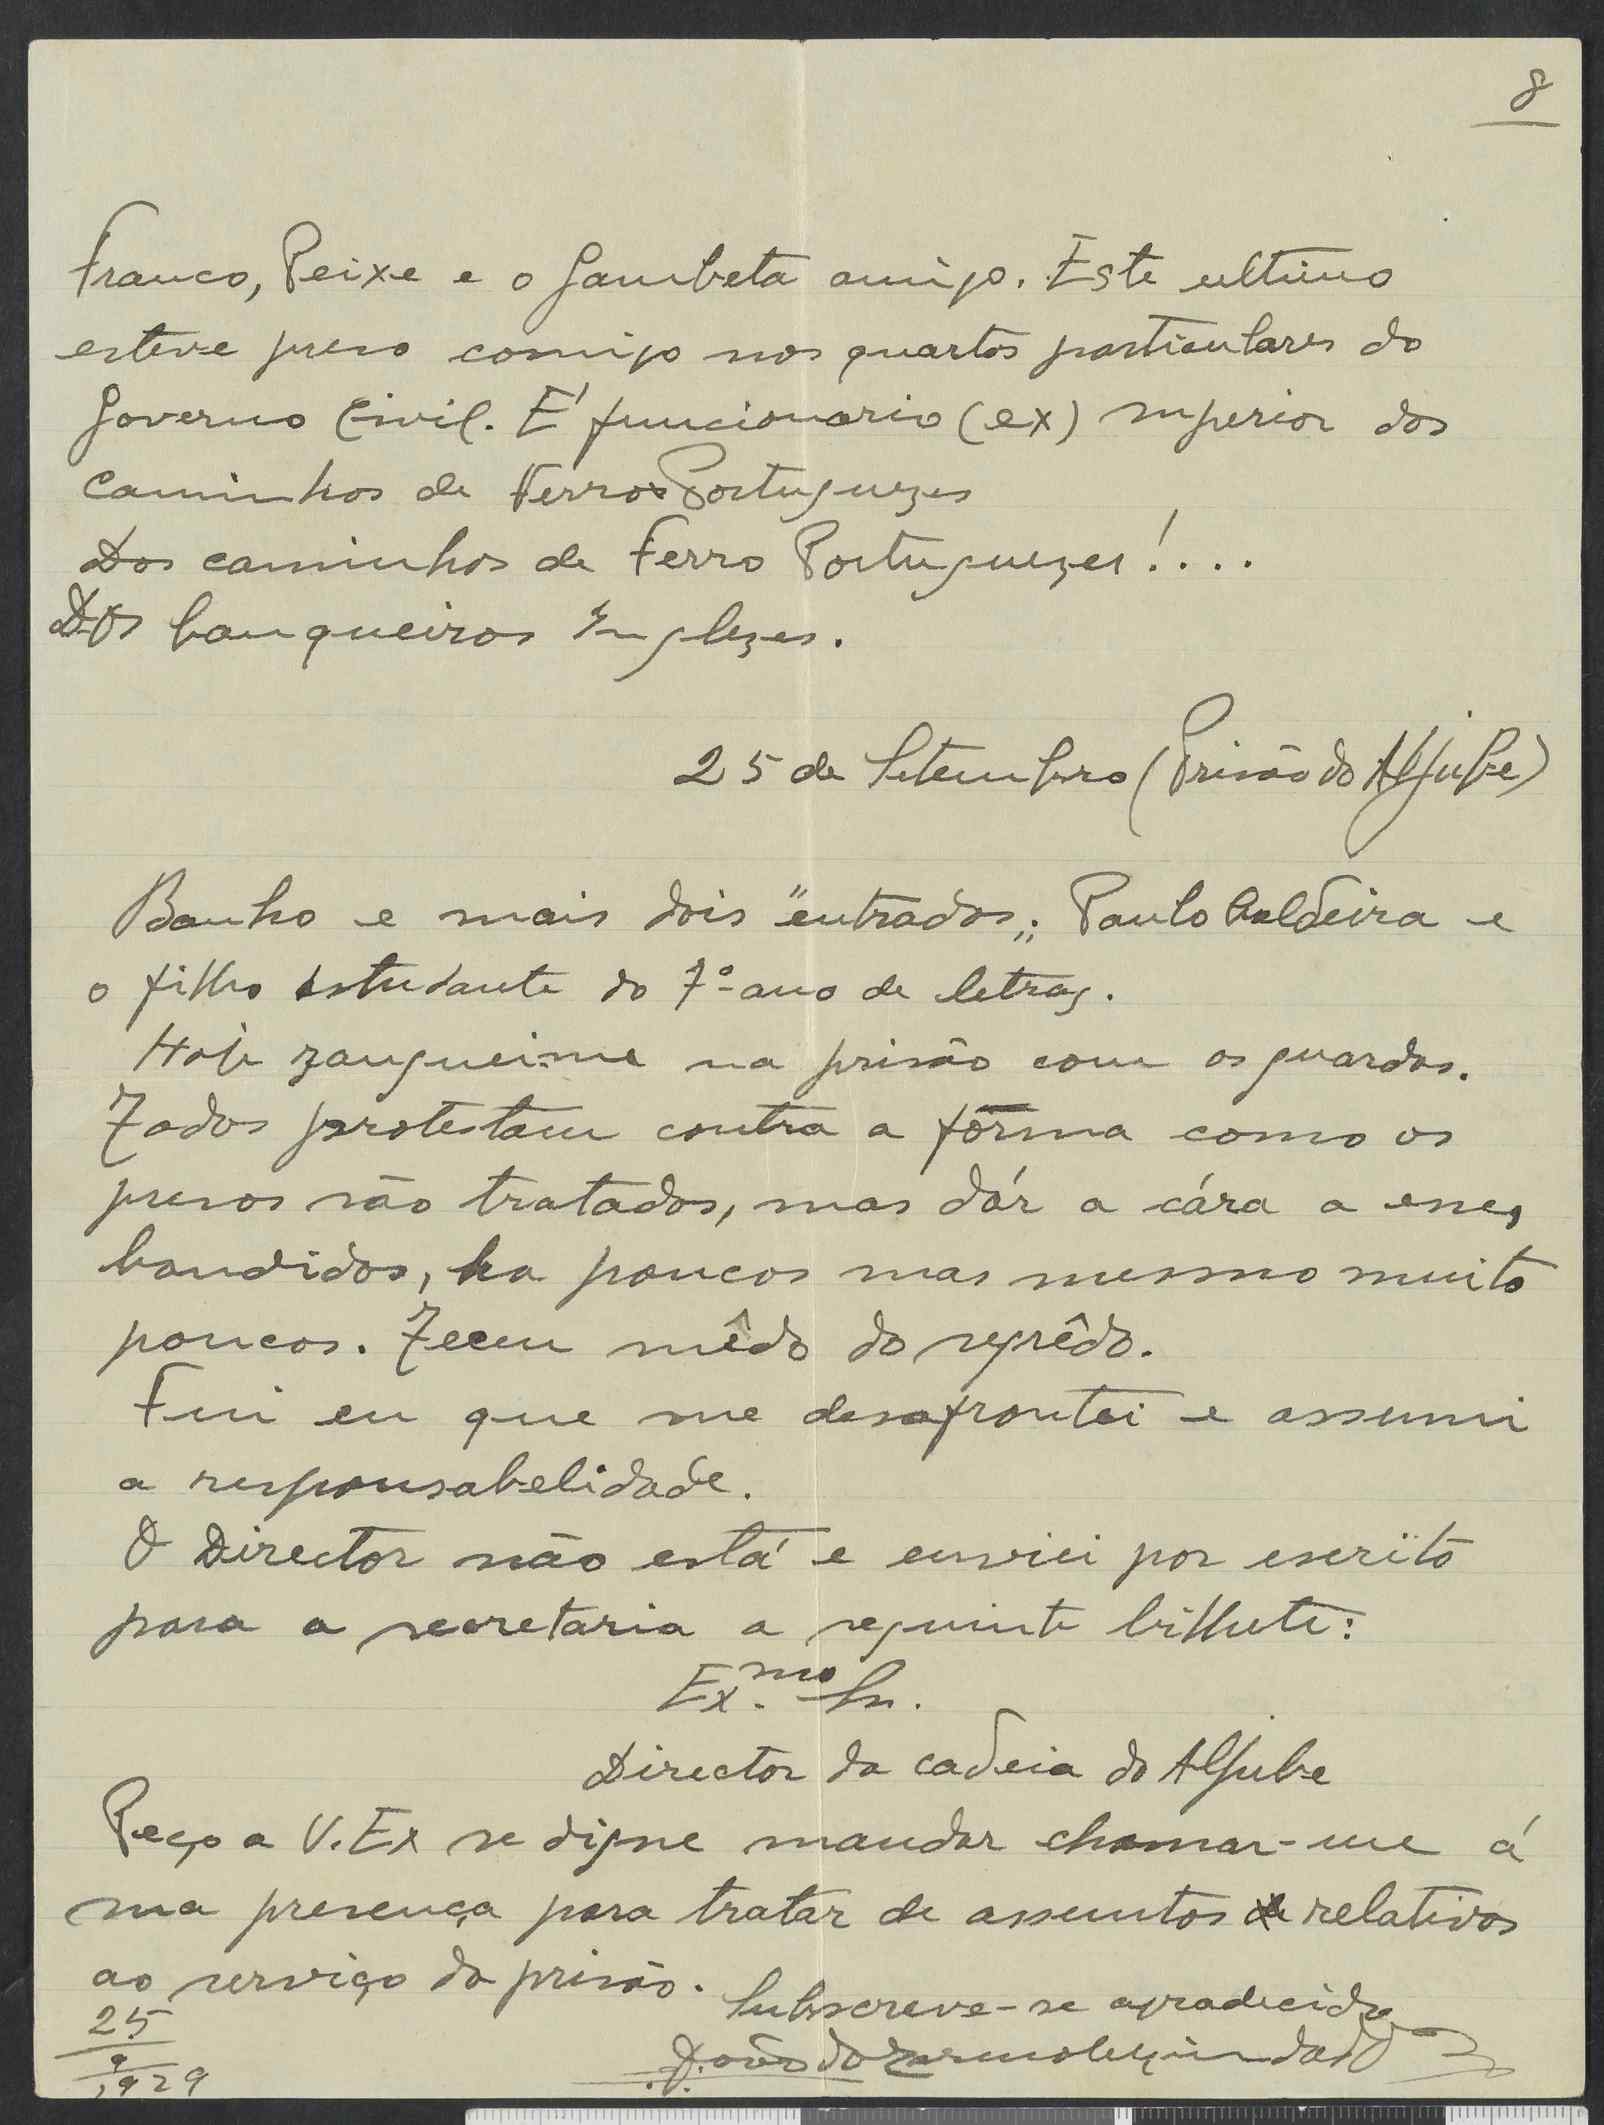 8
Franco, Peixe e o Gambeta amigo. Este ultimo
esteve preso comigo nos quartos particulares do
Governo Civil. E' funcionario (ex) superior dos
Caminhos de Ferros Portuguezes
Dos caminhos de Ferro Portuguezes!....
Dos banqueiros Inglezes.
25 de Setembro (Prisão do Aljube)
Banho e mais dois "entrados": Paulo Caldeira e
o filho estudante do 7º ano de letras.
Hoje zanguei-me na prisão com os guardas.
Todos protestam contra a fórma como os
presos são tratados, mas dár a cára a esses
bandidos, ha poucos mas mesmo muito
poucos. Teem mêdo do segrêdo.
Fui eu que me desafrontei e assumi
a responsabelidade.
O Director não está e enviei por escrito
para a secretaria a seguinte bilhete:
Ex.mo Sr.
Director da cadeia do Aljube
Peço a V. Ex se digne mandar chamar-me á
sua presença para tratar de assuntos de relativos
ao serviço da prisão.
Subscreve-se agradecido
25
9
1929